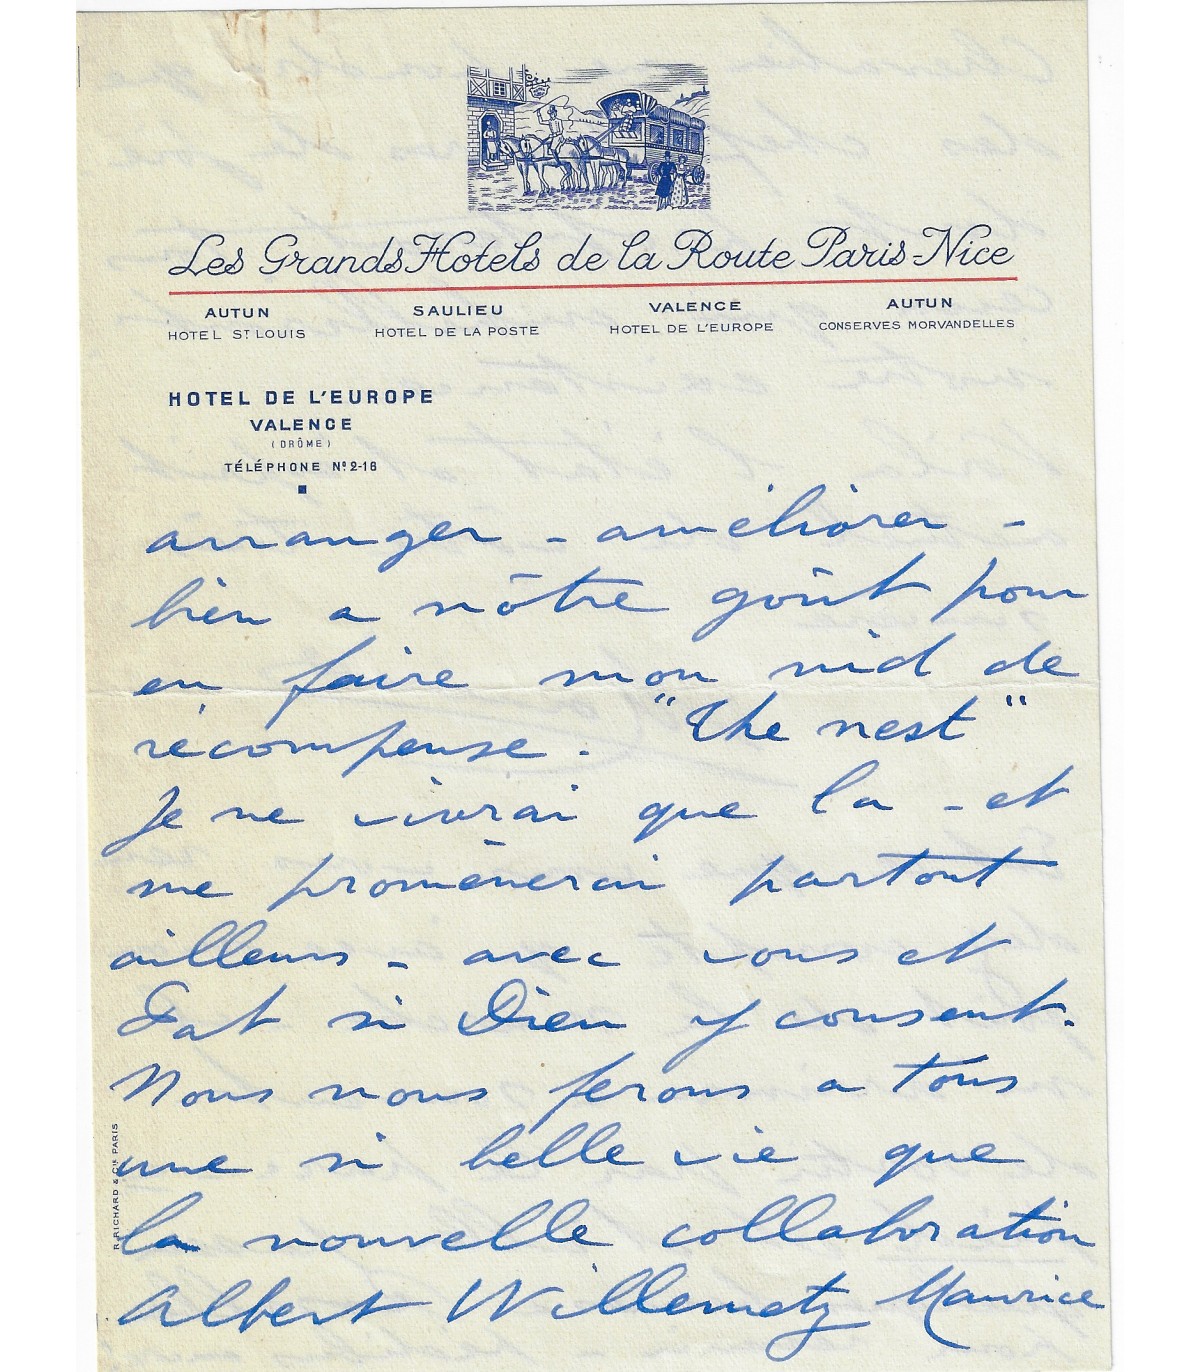 Les Grands Hotels de la Route Paris-Nice
AUTUN
HOTEL ST LOUIS
SAULIEU
HOTEL DE LA POSTE
VALENCE
HOTEL DE L'EUROPE
AUTUN
CONSERVES MORVANDELLES
HOTEL DE L'EUROPE
VALENCE
(DRÔME)
TÉLÉPHONE No 2-16
arranger - améliorer -
bien a nôtre goût pour
en faire mon nid de
récompense. "The nest"
Je ne vivrai que la - et
me promènerai partout
ailleurs - avec vous et
Pat si Dieu y consent.
Nous nous ferons a tous
une si belle vie que
la nouvelle collaboration
Albert Willemetz Maurice
R. RICHARD & Cie PARIS